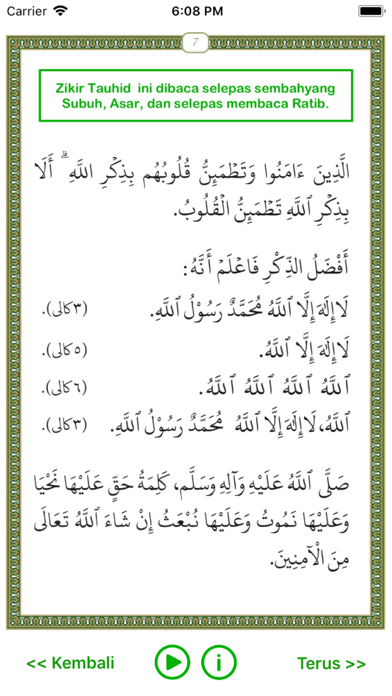 Carrier 6:08 PM
7
Zikir Tauhid ini dibaca selepas sembahyang
Subuh, Asar, dan selepas membaca Ratib.
الَّذِينَ ءَامَنُوا وَتَطْمَئِنُّ قُلُوبُهُم بِذِكْرِ اللَّهِ ۗ أَلَا
بِذِكْرِ ٱللَّهِ تَطْمَئِنُّ الْقُلُوبُ.
أَفْضَلُ الذِّكْرِ فَاعْلَمْ أَنَّهُ:
لَا إِلَهَ إِلَّا ٱللَّهُ مُحَمَّدٌ رَسُوْلُ ٱللَّهِ. (٣ كالى).
لَا إِلَهَ إِلَّا ٱللَّهُ. (٥ كالى).
ٱللَّهُ ٱللَّهُ ٱللَّهُ ٱللَّهُ. (٦ كالى).
ٱللَّهُ، لَا إِلَهَ إِلَّا ٱللَّهُ مُحَمَّدٌ رَسُوْلُ ٱللَّهِ. (٣ كالى).
صَلَّى ٱللَّهُ عَلَيْهِ وَآلِهِ وَسَلَّم، كَلِمَةُ حَقٍّ عَلَيْهَا نَحْيَا
وَعَلَيْهَا نَمُوتُ وَعَلَيْهَا نُبْعَثُ إِنْ شَاءَ ٱللَّهُ تَعَالَى
مِنَ الْآمِنِينَ.
<< Kembali i Terus >>